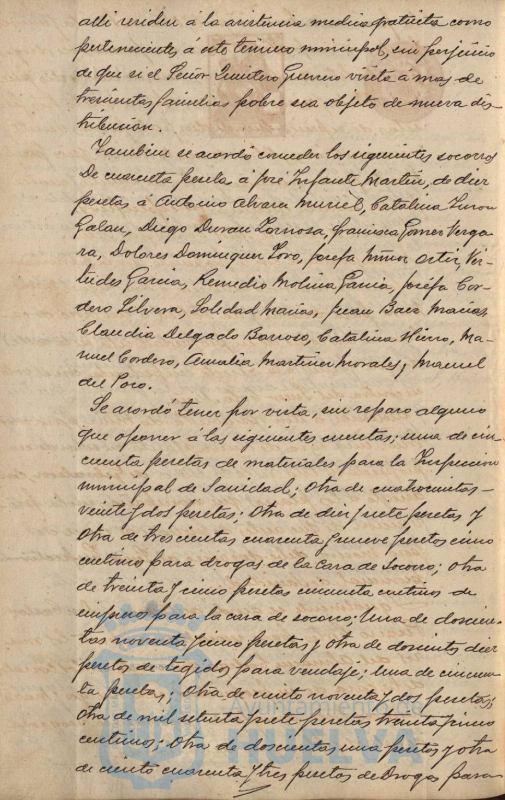 alli residen á la asistencia medica gratuita como
perteneciente, á este término municipal, sin perjuicio
de que si el Señor Quintero Guerrero visita á mas de
trescientas familias pobres sea objeto de nueva dis-
tribución.
Tambien se acordó conceder los siguientes socorros
De cuarenta pesetas á José Infante Martin, de diez
pesetas, á Antonio Alvarez Muriel, Catalina
Galan, Diego Duran Zornosa, Francisca Gomez Verga-
ra, Dolores Dominguez Toro, Josefa Muñoz Ortiz, Vir-
tudes Garcia, Remedio Molina Garcia, Josefa Cor-
dero Silvera, Soledad Macias, Juan Baez Macias,
Claudia Delgado Barroso, Catalina Hierro, Ma-
nuel Cordero, Amalia Martinez Morales, y Manuel
del Pozo.
Se acordó tener por vista, sin reparo alguno
que oponer á las siguientes cuentas; una de cin-
cuenta pesetas de materiales para la Inspeccion
municipal de Sanidad; Otra de cuatrocientas
veinte y dos pesetas; Otra de diez y siete pesetas y
Otra de trescientas cuarenta y nueve pesetas cinco
centimos para drogas de la casa de Socorro; Otra
de treinta y cinco pesetas cincuenta centimos de
para la casa de socorro; Una de doscien-
tas noventa y cinco pesetas y otra de doscientas diez
pesetas de tegidos para vendaje; Una de cincuen-
ta pesetas; Otra de ciento noventa y dos pesetas;
Otra de mil setenta y siete pesetas treinta y cinco
centimos; Otra de doscientas una pesetas y otra
de ciento cuarenta y tres pesetas de Drogas para
Ayuntamiento de
HUELVA